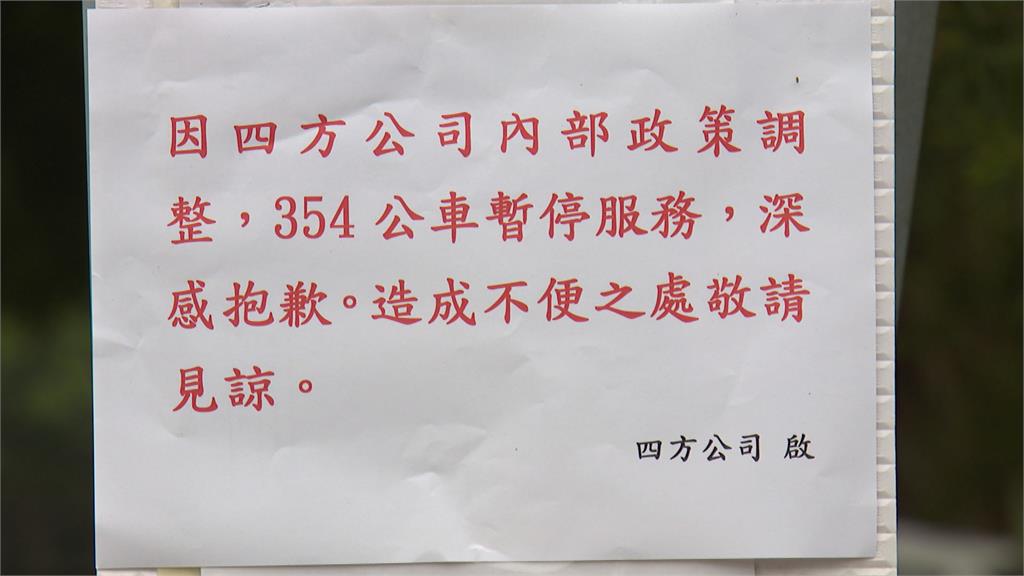 因四方公司內部政策調
整，354公車暫停服務，深
感抱歉。造成不便之處敬請
見諒。
四方公司 啟